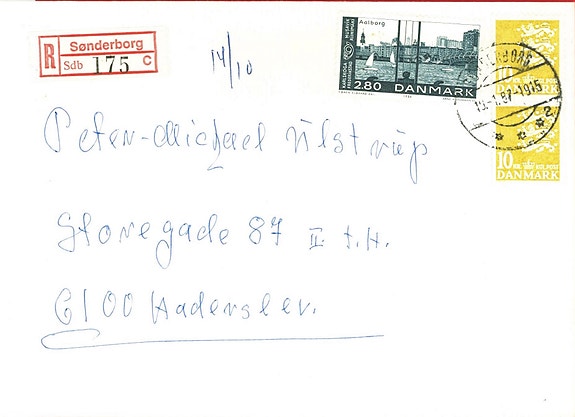 R Sønderborg
Sdb 175 C
14/10
Aalborg
2.80 DANMARK
15.-1.87-1915
2.
10 KR. KGL.POST.
DANMARK
Peter-Michael Ulstrup
Storegade 87 II t.H.
6100 Haderslev.